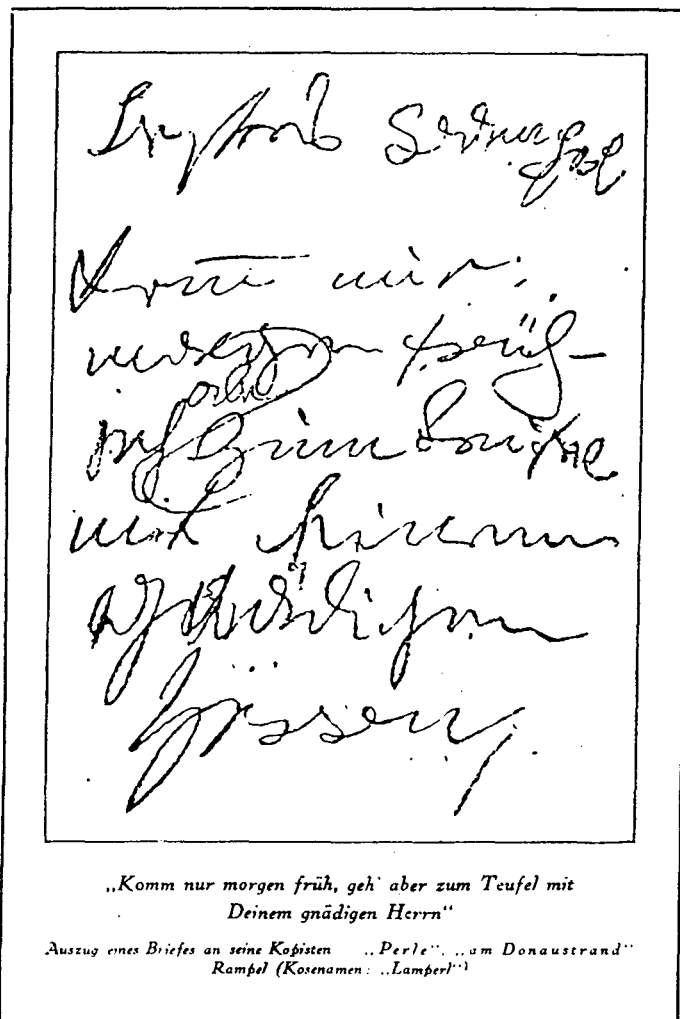 nur
morgen früh
aber
geh zum Teufel
mit deinem
gnädigen
„Komm nur morgen früh, geh' aber zum Teufel mit
Deinem gnädigen Herrn“
Auszug eines Briefes an seine Kopisten „Perle“, „am Donaustrand“
Rampel (Kosenamen: „Lamperl“)